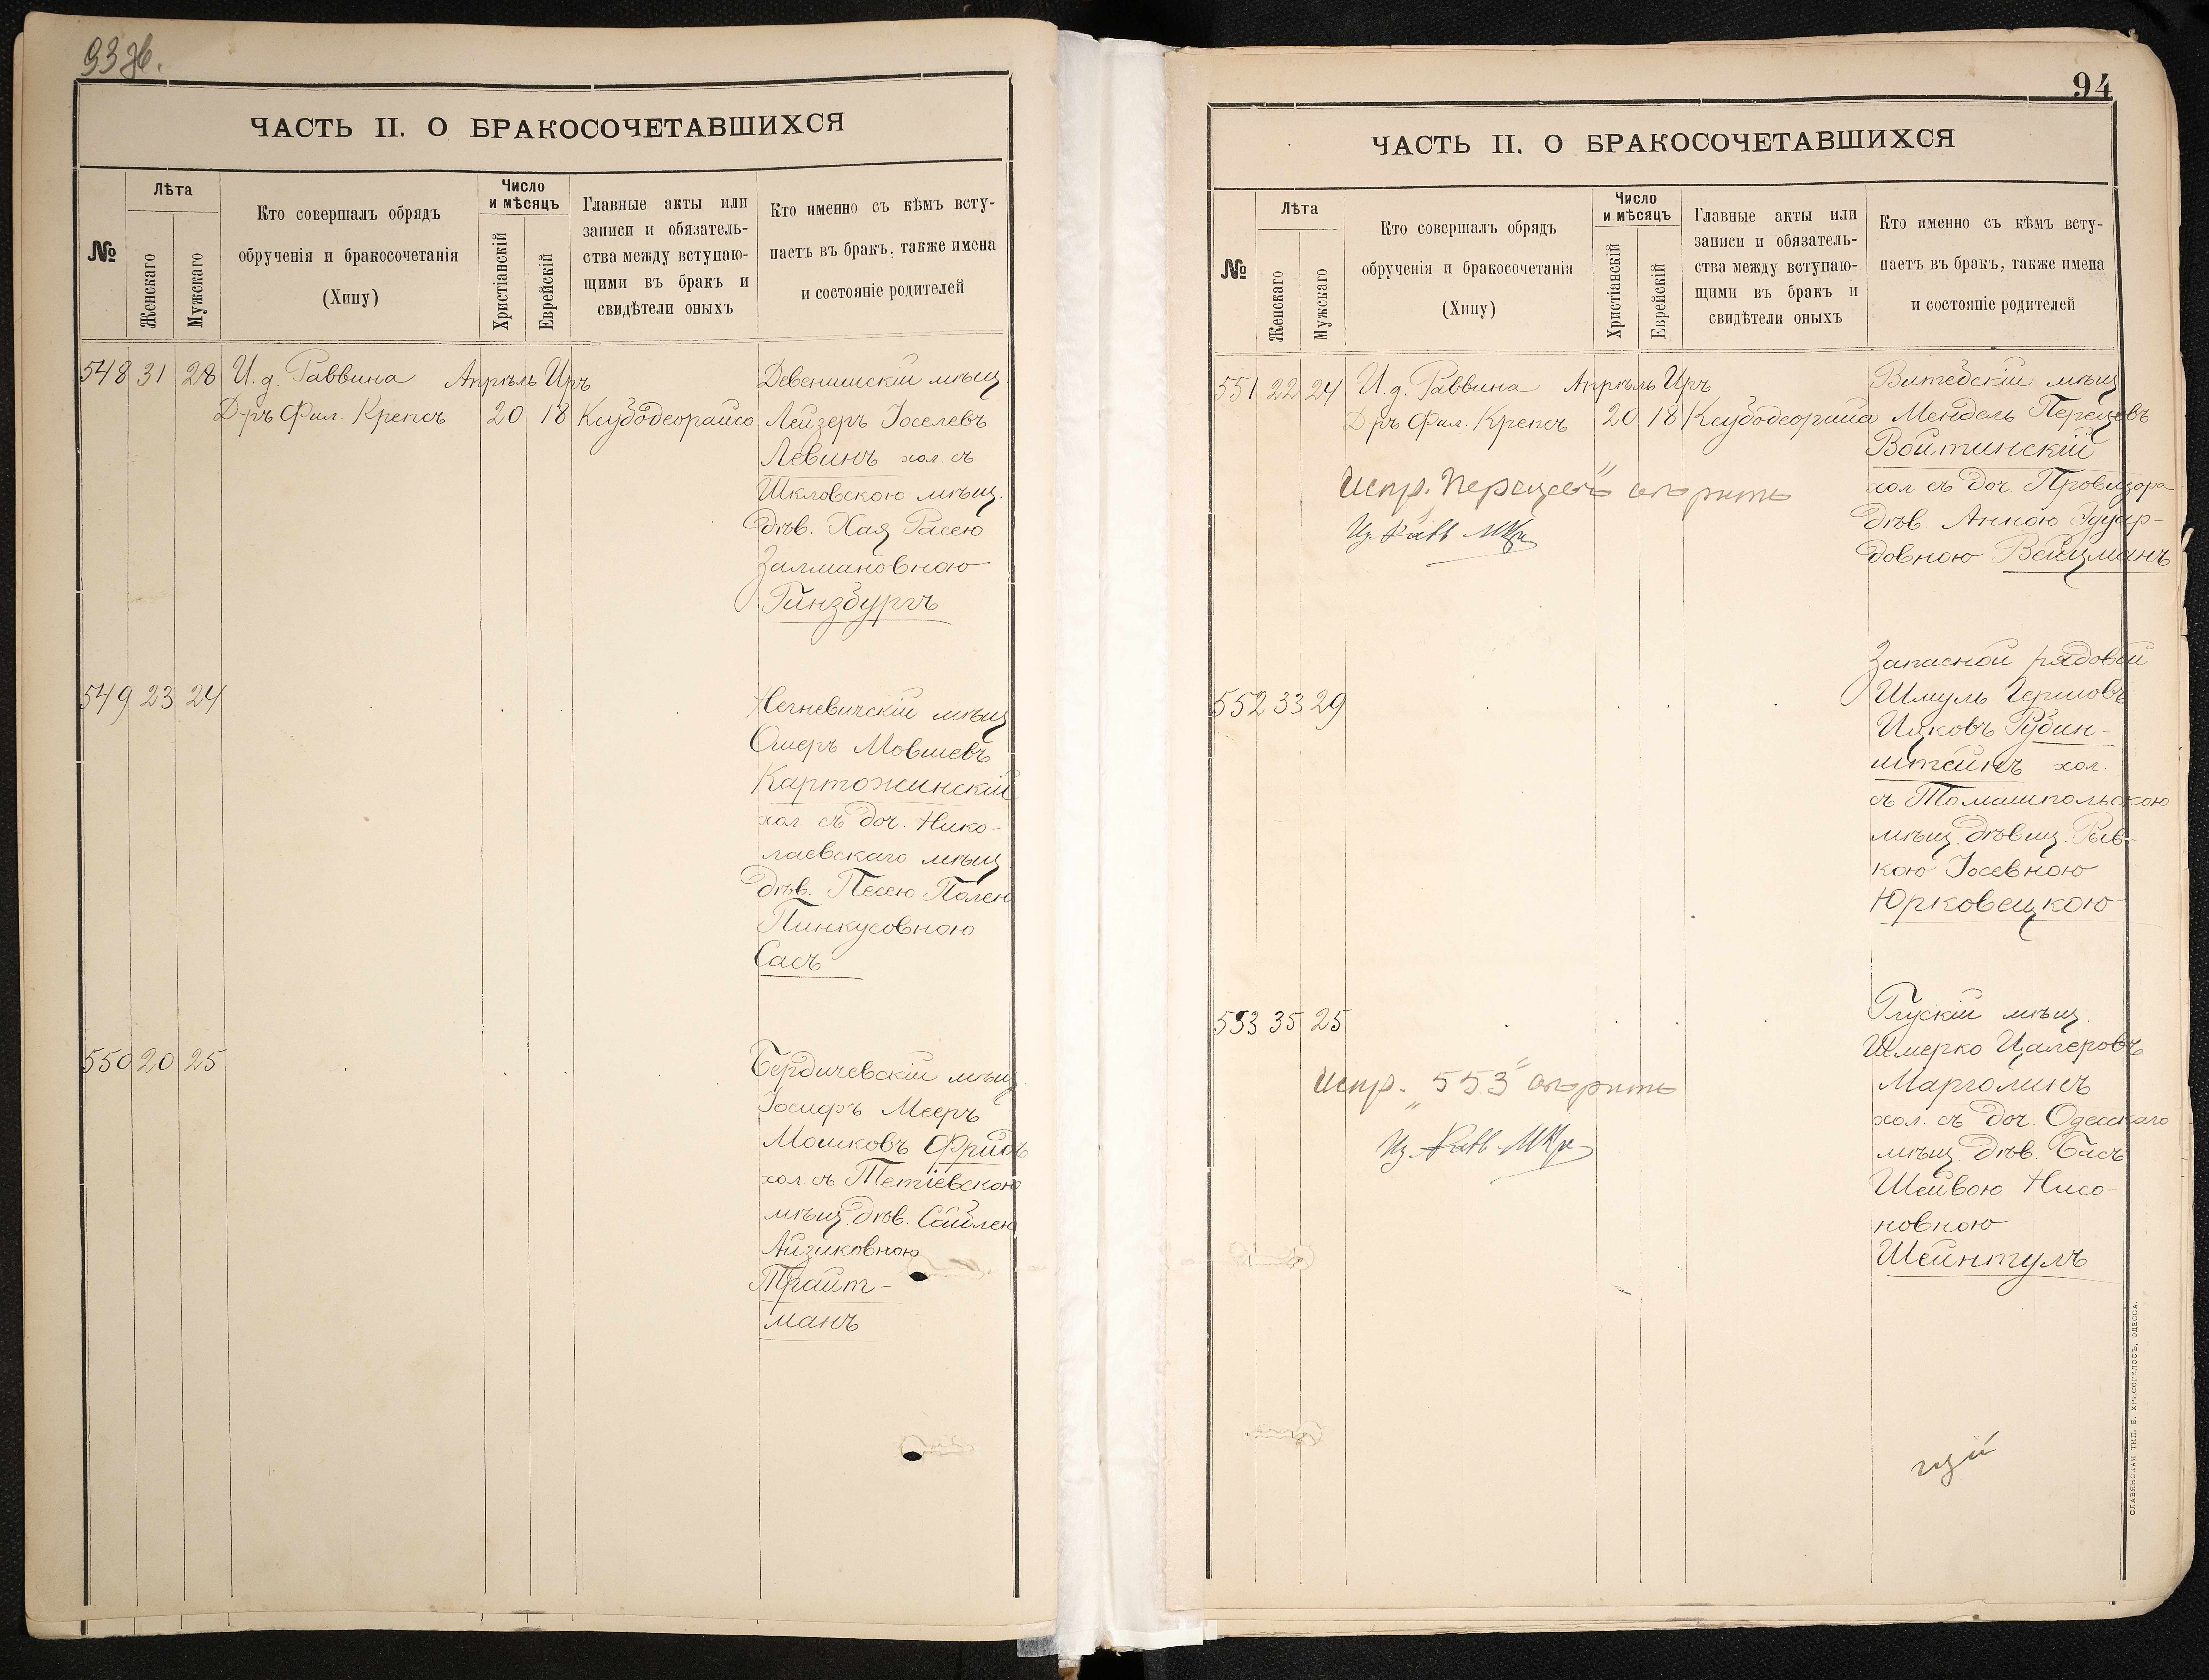 ЧАСТЬ II. О БРАКОСОЧЕТАВШИХСЯ
№
Лѣта
Женскаго
Мужскаго
Кто совершалъ обрядъ
обрученія и бракосочетанія
(Хипу)
Число
и мѣсяцъ
Христіанскій
Еврейскій
Главные акты или
записи и обязатель-
ства между вступаю-
щими въ бракъ и
свидѣтели оныхъ
Кто именно съ кѣмъ всту-
паетъ въ бракъ, также имена
и состояніе родителей
548 31 28 И. д. Раввина Апрѣль Iръ
Д-ръ Фил. Крепсъ 20 18
Девенишскій мѣщ
Лейзеръ Іоселевъ
Левинъ хол. съ
Шкловскою мѣщ.
дѣв. Хая Расею
Залмановною
Гинзбургъ
549 23 24
Негневичскій мѣщ
Ошеръ Мовшевъ
Картожинскій
хол. съ доч. Нико-
лаевскаго мѣщ
дѣв. Песею Полею
Пинкусовною
Сасъ
550 20 25
Бердичевскій мѣщ
Іосифъ Мееръ
Мошковъ Фридъ
хол. съ Тетіевскою
мѣщ. дѣв. Сойблею
Айзиковною
Трайт-
манъ
94
ЧАСТЬ II. О БРАКОСОЧЕТАВШИХСЯ
№
Лѣта
Женскаго
Мужскаго
Кто совершалъ обрядъ
обрученія и бракосочетанія
(Хипу)
Число
и мѣсяцъ
Христіанскій
Еврейскій
Главные акты или
записи и обязатель-
ства между вступаю-
щими въ бракъ и
свидѣтели оныхъ
Кто именно съ кѣмъ всту-
паетъ въ бракъ, также имена
и состояніе родителей
551 22 24 И. д. Раввина Апрѣль Iръ
Д-ръ Фил. Крепсъ 20 18
Витебскій мѣщ
Мендель Перецовъ
Войтинскій
хол съ доч. Провизора
дѣв. Анною Эдуар-
довною Вейцманъ
Испр. „Перецовъ“ вѣрить
552 33 29
Запасной рядовой
Шмуль Гершовъ
Ицковъ Рубин-
штейнъ хол.
съ Томашпольскою
мѣщ. дѣвиц. Рыв-
кою Іосевною
Юрковецкою
553 35 25
Глускій мѣщ.
Шмерко Цалеровъ
Марголинъ
хол. съ доч. Одесскаго
мѣщ. дѣв. Басъ
Шейвою Нисо-
новною
Шейнтулъ
Испр. „553“ вѣрить
СЛАВЯНСКАЯ ТИП. Е. ХРИСОГЕЛОСЪ, ОДЕССА.